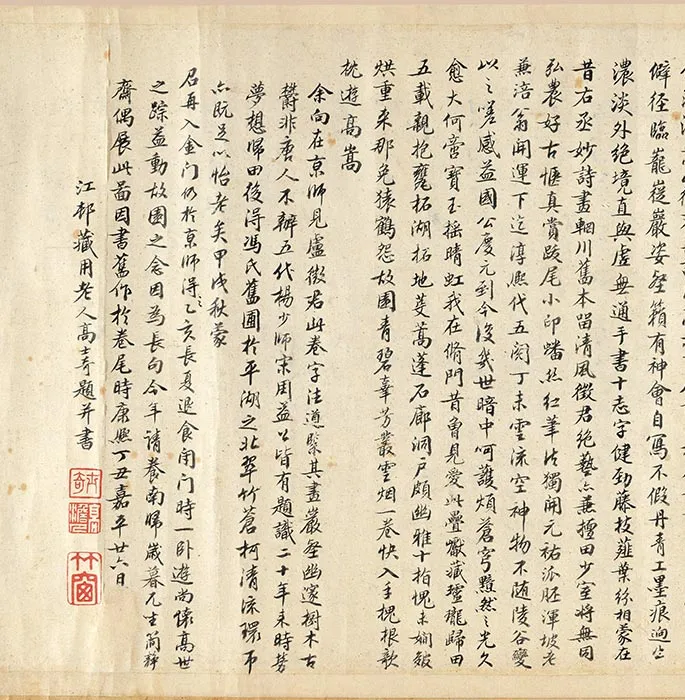 僻径臨巃嵸巖姿壑籟有神會自寫不假丹青工墨痕迥出
濃淡外絶境直與虛無通手書十志字健勁藤枝薤葉紛相蒙在
昔右丞妙詩畫輞川舊本留清風徵君絶藝亦兼擅田少室將無同
弘農好古愜真賞跋尾小印蟠絲紅筆法獨開元祐派胚渾坡老
兼涪翁開運下迄淳熙代五閱丁未雲流空神物不随陵谷變
以之嗟感益國公慶元到今復幾世暗中呵護煩蒼穹黯然之光久
愈大何啻寶玉摇晴虹我在脩門昔曾見愛此疊巘藏瓏歸田
五載親抱甕柘湖拓地芟蒿蓬石廊洞戶頗幽雅十指愧未嫻皴
烘重来那免猿鶴怨故園青碧辜芳叢雲烟一卷快入手槐根欹
枕遊高嵩
余向在京師見盧徵君此卷字法遒緊其畫巖壑幽邃樹木古
欝非唐人不辦五代楊少師宋周益公皆有題識二十年来時勞
夢想歸田後得馮氏舊圃於平湖之北翠竹蒼柯清流環帀
亦既足以怡老矣甲戌秋蒙
召再入金门仍於京師得之乙亥長夏退食閉门時一卧遊尚懷高世
之踪益動故園之念因為長句今年請養南歸歲暮兀坐簡靜
齋偶展此圖因書舊作於卷尾時康熙丁丑嘉平廿六日
江邨藏用老人高士奇題并書
竹窗